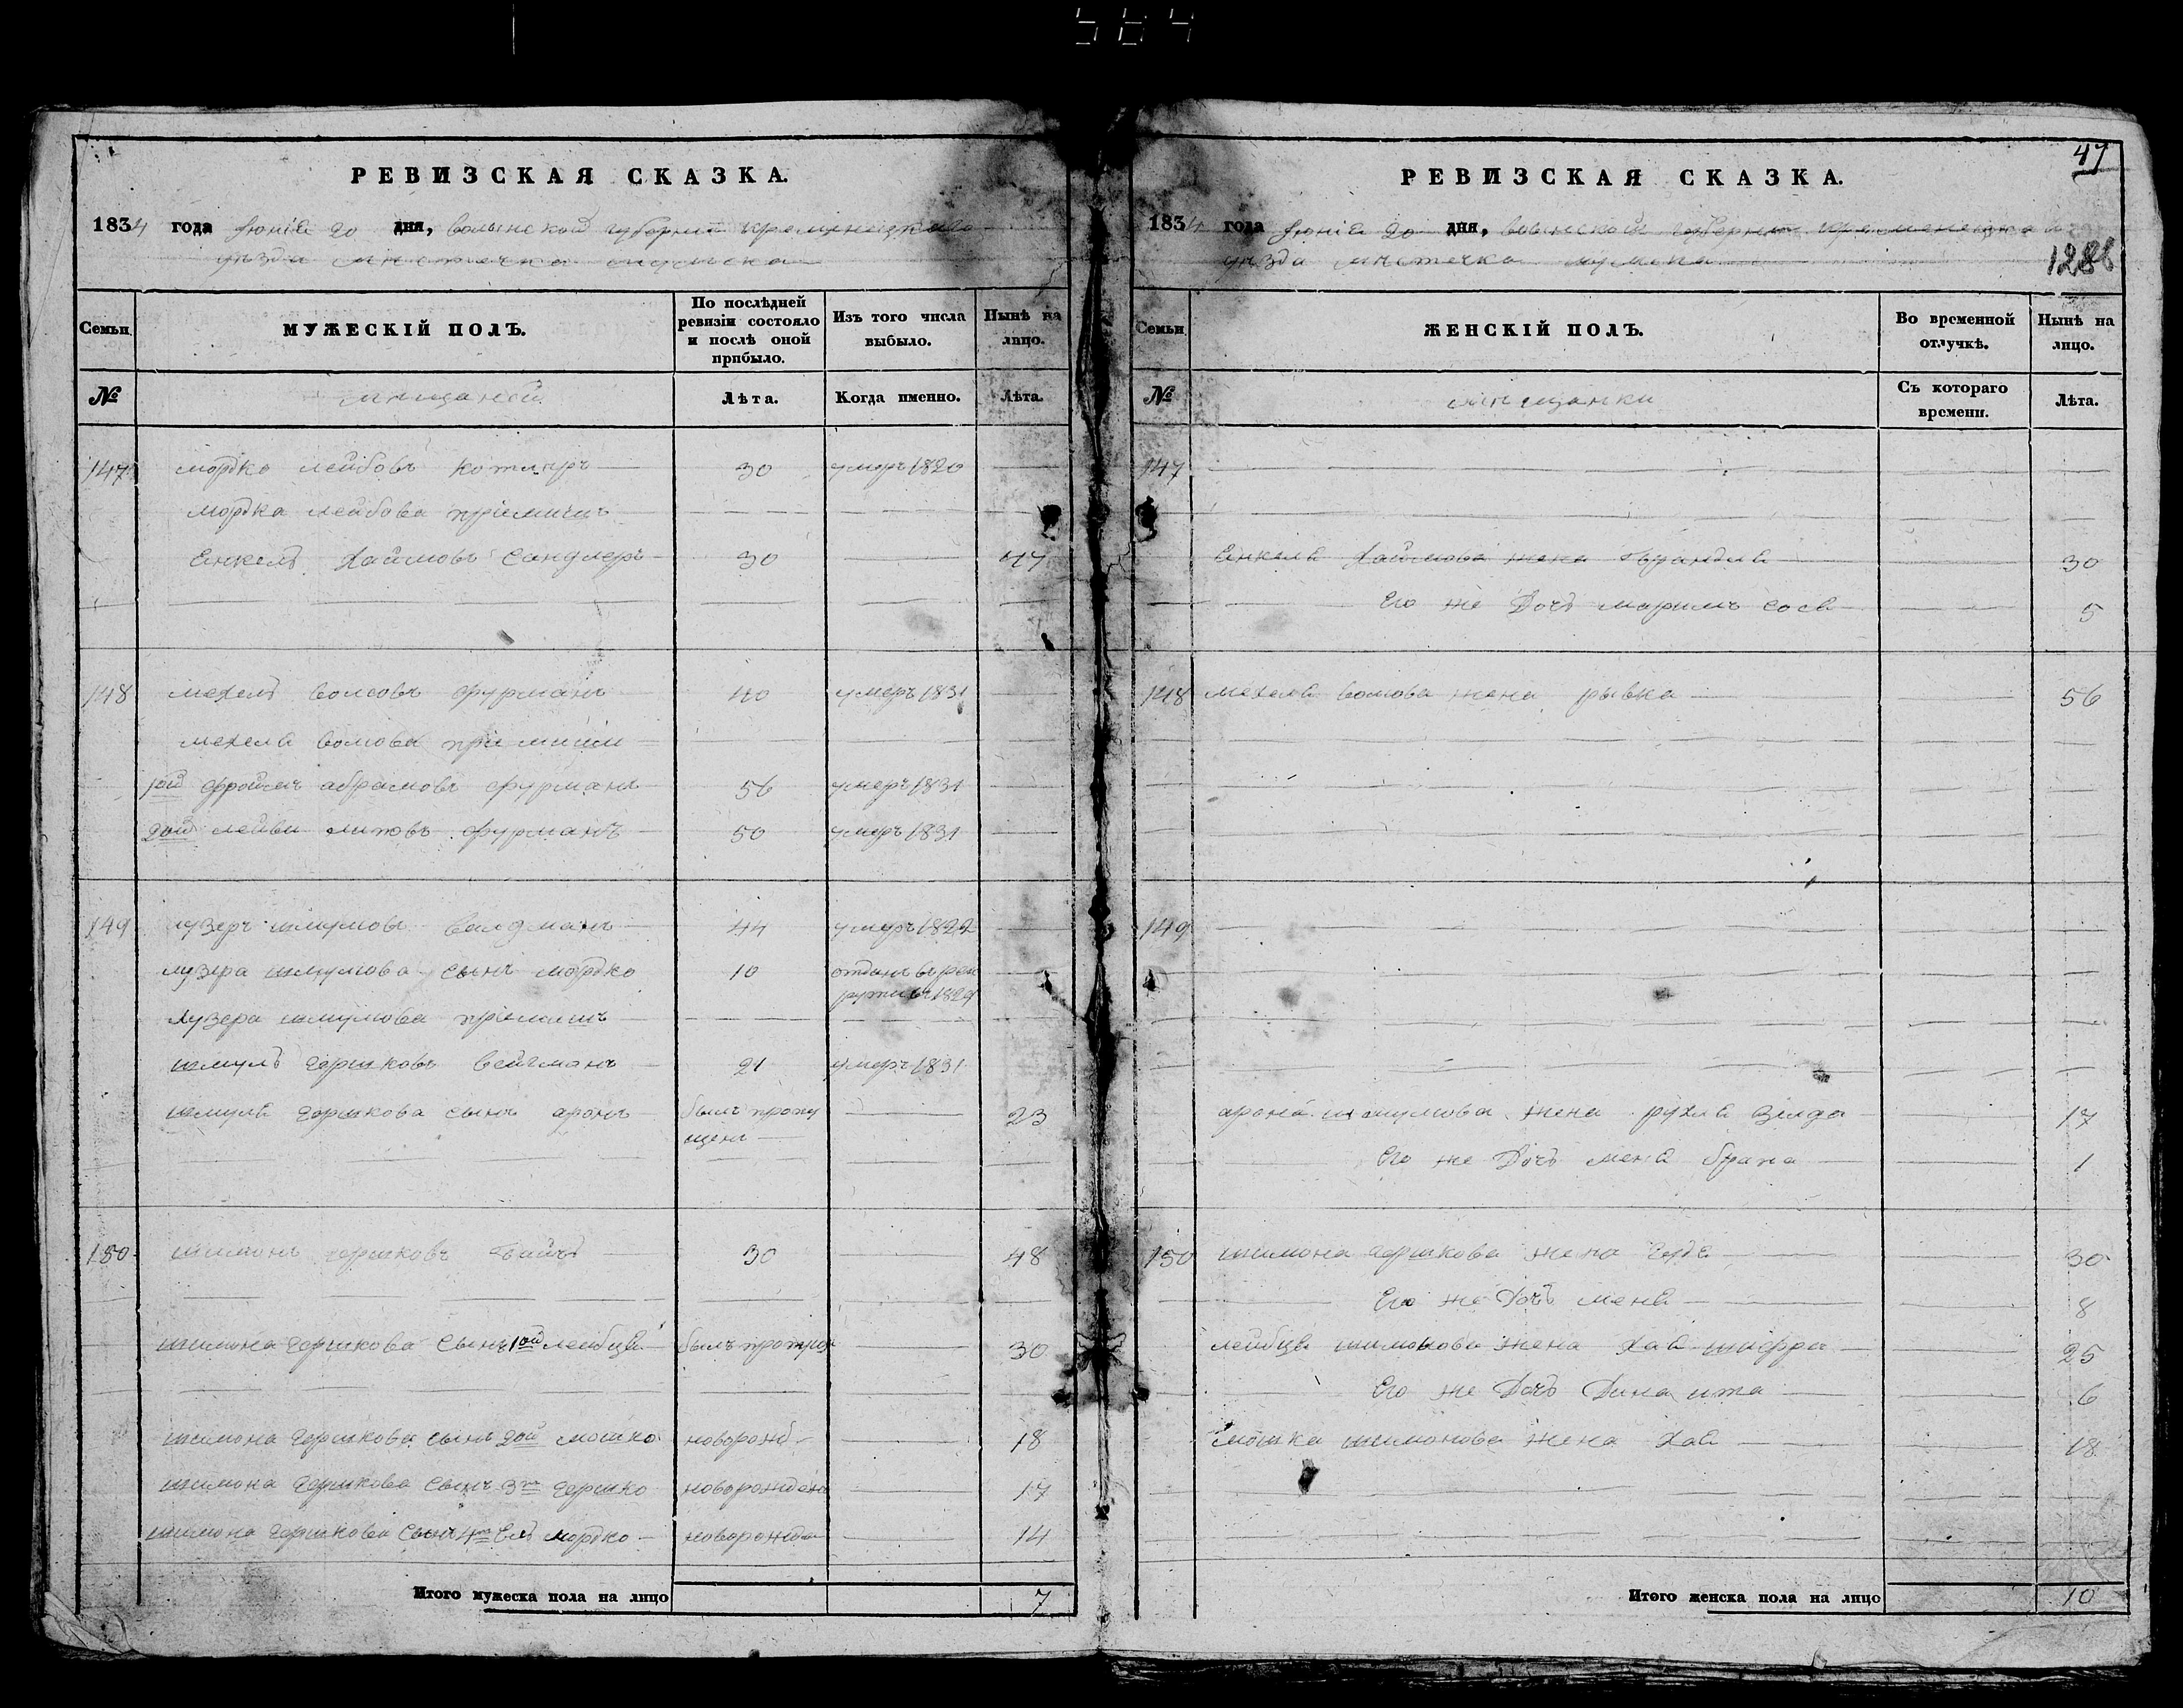 584
РЕВИЗСКАЯ СКАЗКА.
1834 года Июнія 20 дня, волынской губерніи кременецкаго
уѣзда мѣстечка
Семьи
МУЖЕСКІЙ ПОЛЪ.
По послѣдней ревизіи состояло и послѣ оной прибыло.
Изъ того числа выбыло.
Нынѣ на лицо.
№
мѣщаней
Лѣта.
Когда именно.
Лѣта.
147 мордко лейбовъ 30 умеръ 1820
мордка лейбова пріемышъ
Енкель Хаймовъ Сандлеръ 30 47
148 мехель волсовъ фурманъ 40 умеръ 1831
мехеля
1ой абрамовъ фурманъ 56 умеръ 1831
2ой лейби фурманъ 50 умеръ 1831
149 лузеръ шмуловъ 44 умеръ 1822
лузера шмулова сынъ мордко 10 отданъ въ рек
руты въ 1829
лузера шмулова пріемышъ
шмуль гершковъ вейцманъ 21 умеръ 1831
шмуля гершкова сынъ аронъ былъ пропу 23
щенъ
150 шимонъ гершковъ 30 48
шимона гершкова сынъ 1ой лейбцѣ былъ 30
шимона гершкова сынъ 2ой мошко новорожд 18
шимона гершкова сынъ 3й гершко новорожденъ 17
шимона гершкова сынъ 4й мордко новорожд 14
Итого мужеска пола на лицо 7
47
РЕВИЗСКАЯ СКАЗКА.
1834 года Июнія 20 дня, волынской губерніи кременецкаго
уѣзда мѣстечка
1286
Семьи
ЖЕНСКІЙ ПОЛЪ.
Во временной отлучкѣ.
Нынѣ на лицо.
№
мѣщанки
Съ котораго времени.
Лѣта.
147
Енкеля Хаймова жена 30
Его же Дочь 5
148 мехеля жена рывка 56
149
арона шмулова жена рухля 17
Его же Дочь 1
150 шимона гершкова жена 30
Его же Дочь 8
лейбцѣ шимонова жена Хая шифра 25
Его же Дочь Дина ита 6
мошка шимонова жена Хая 18
Итого женска пола на лицо 10